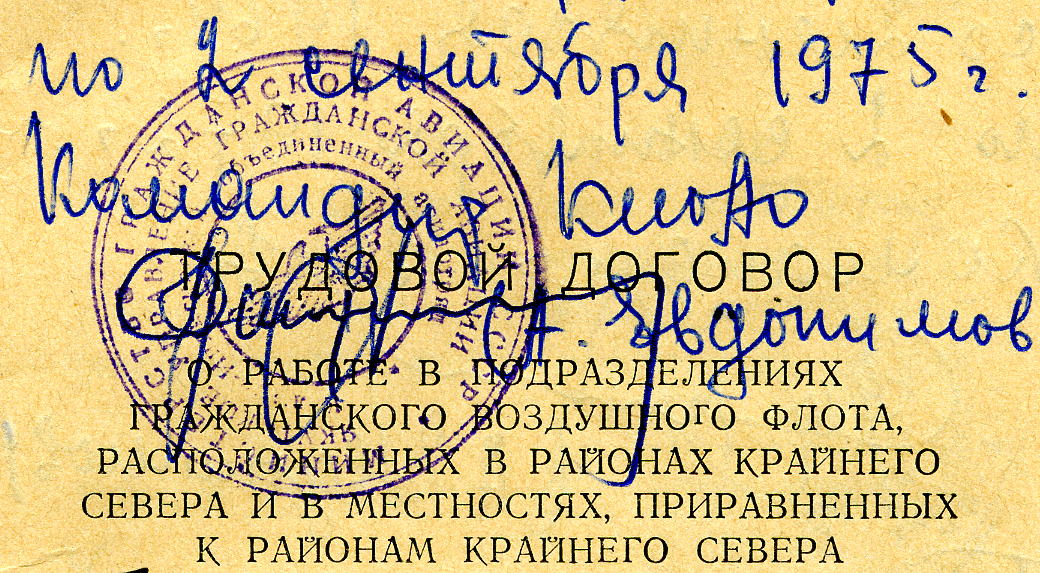 по 2 сентября 1975 г.
Командир КиОАО
А. Евдокимов
ТРУДОВОЙ ДОГОВОР
О РАБОТЕ В ПОДРАЗДЕЛЕНИЯХ
ГРАЖДАНСКОГО ВОЗДУШНОГО ФЛОТА,
РАСПОЛОЖЕННЫХ В РАЙОНАХ КРАЙНЕГО
СЕВЕРА И В МЕСТНОСТЯХ, ПРИРАВНЕННЫХ
К РАЙОНАМ КРАЙНЕГО СЕВЕРА
ГРАЖДАНСКОЙ АВИАЦИИ СССР
ГРАЖДАНСКОЙ АВИАЦИИ
объединенный